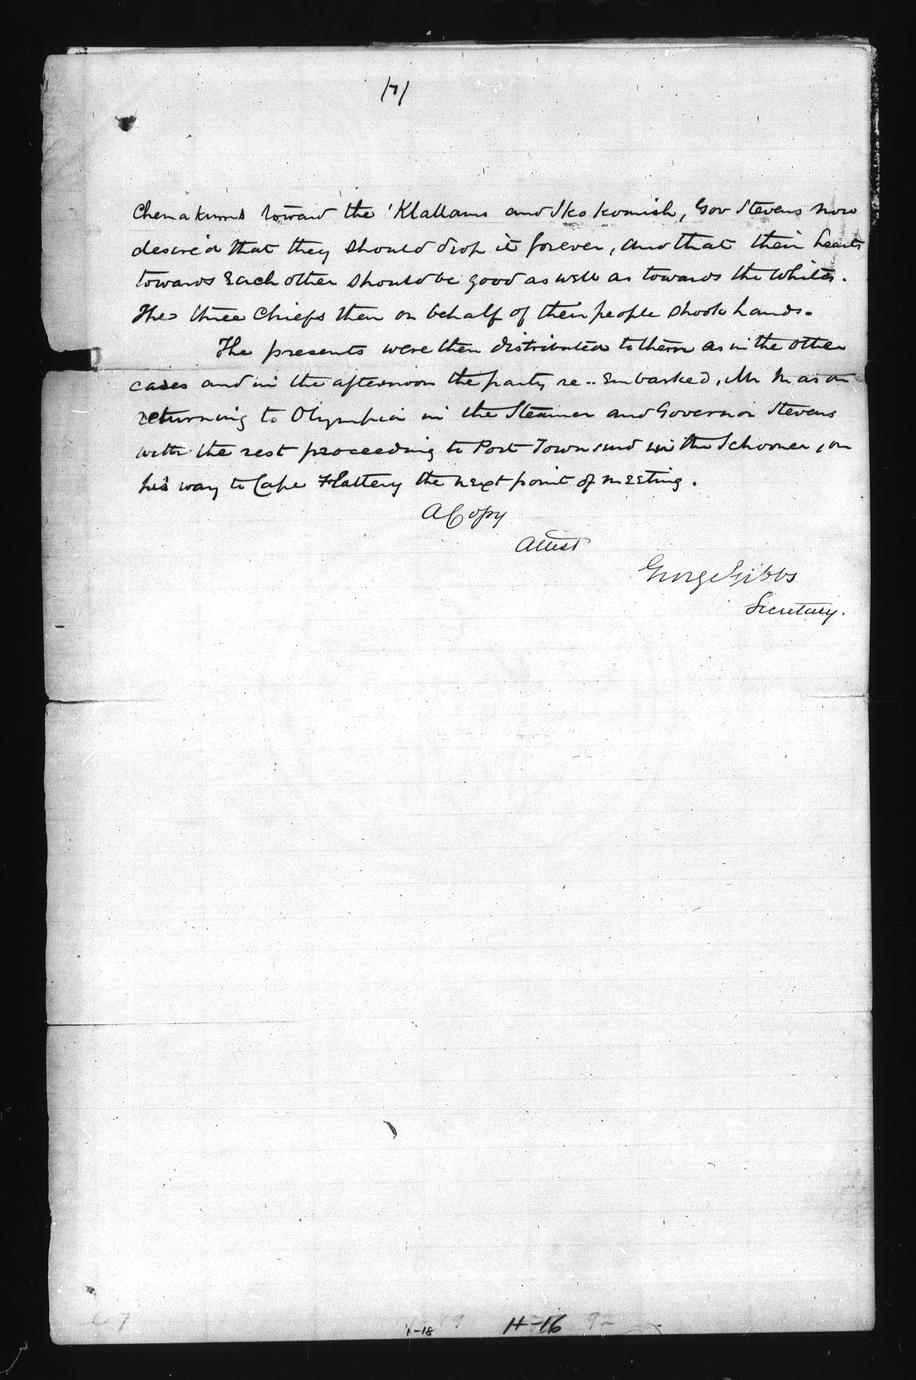 /7/
Chemakums toward the 'Klallams and Skokomish, Gov Stevens now
desired that they should drop it forever, and that their hearts
towards Each other should be good as well as towards the Whites.
The three Chiefs then on behalf of their people shook hands.
The presents were then distributed to them as in the other
cases and in the afternoon the party re-Embarked, Mr Mason
returning to Olympia in the Steamer and Governor Stevens
with the rest proceeding to Port Townsend in the Schooner, on
his way to Cape Flattery the next point of meeting.
A Copy
Attest
George Gibbs
Secretary.
1-18
H-16